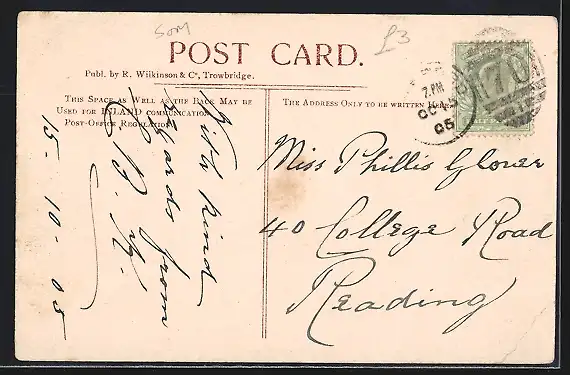 Som
£3
POST CARD.
Publ. by R. Wilkinson & Co, Trowbridge.
This Space as Well as the Back May be
Used for INLAND communication
Post-Office Regulation
The Address Only to be written Here
7.PM
OC
05
With kind
regards from
15. 10. 05
Miss Phillis Glover
40 College Road
Reading